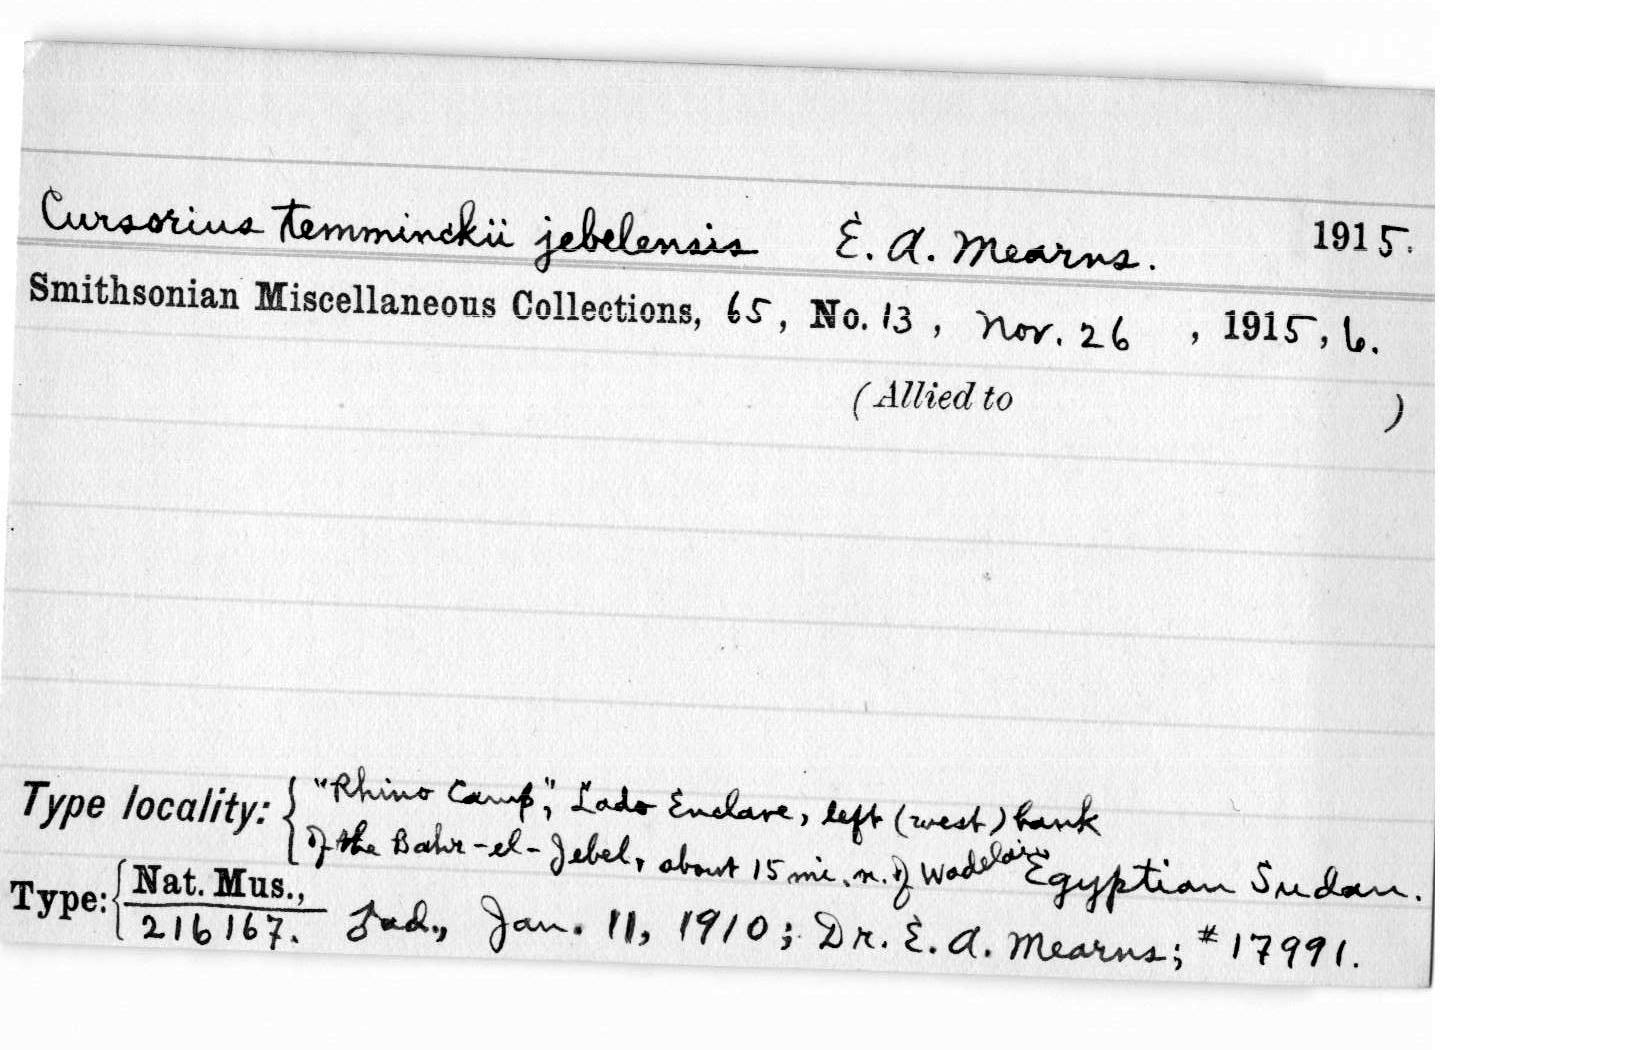 Cursorius temminckii jebelensis E. A. Mearns. 1915.
Smithsonian Miscellaneous Collections, 65, No. 13, Nov. 26, 1915, 6.
(Allied to )
Type locality: { "Rhino Camp", Lado Enclave, left (west) bank
of the Bahr-el-Jebel, about 15 mi. n. of Wadelai, Egyptian Sudan.
Type: { Nat. Mus.,
216167. ad., Jan. 11, 1910; Dr. E. A. Mearns; #17991.